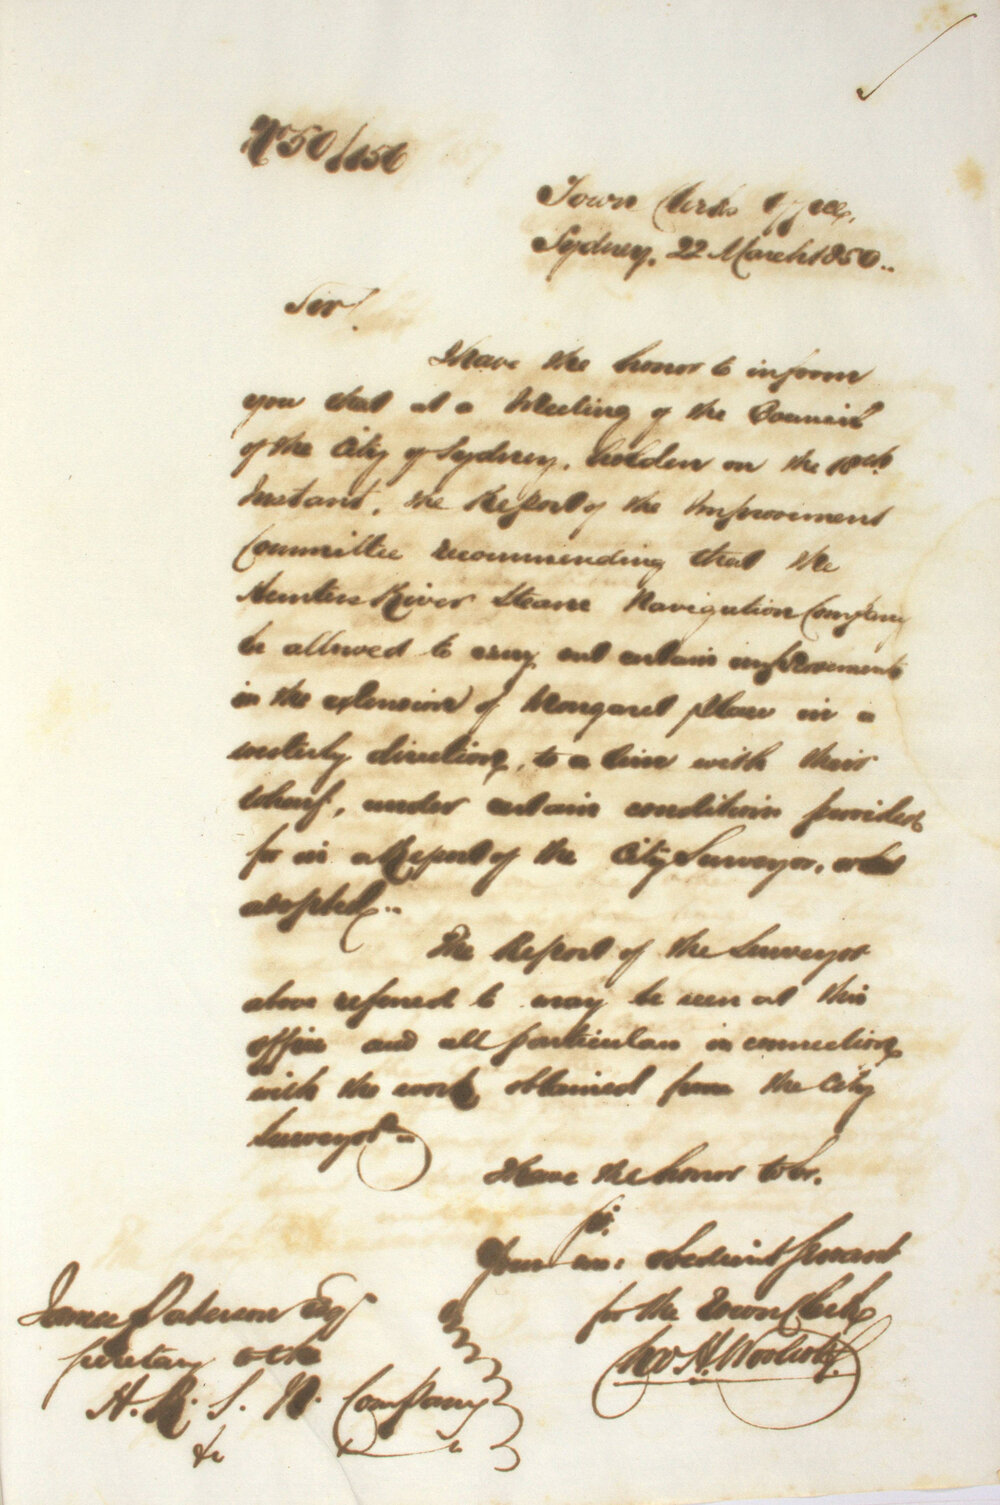 No 50/156
Town Clerks Office,
Sydney, 22 March 1850..
Sir!
I have the honor to inform
you that at a Meeting of the Council
of the City of Sydney, holden on the 18th
Instant, the Report of the Improvement
Committee recommending that the
Hunters River Steam Navigation Company
be allowed to carry out certain improvements
in the extension of Margaret place in a
westerly direction, to a line with their
wharf, under certain conditions provided
for in a Report of the City Surveyor, was
adopted..
The Report of the Surveyor
above referred to may be seen at this
office and all particulars in connection
with the work obtained from the City
Surveyor
I have the honor to be,
Sir,
Your obedient Servant
for the Town Clerk
H. Woolcott
James Paterson Esq
Secretary to the
H. R. S. N. Company
&c